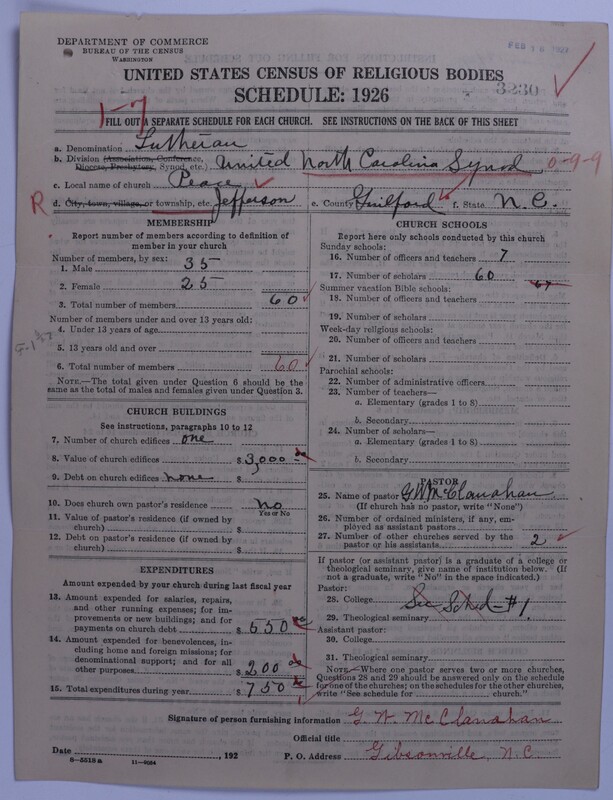 DEPARTMENT OF COMMERCE
BUREAU OF THE CENSUS
WASHINGTON
UNITED STATES CENSUS OF RELIGIOUS BODIES
SCHEDULE: 1926
3230
1-7
FILL OUT A SEPARATE SCHEDULE FOR EACH CHURCH. SEE INSTRUCTIONS ON THE BACK OF THIS SHEET
a. Denomination Lutheran
b. Division (Association, Conference, Diocese, Presbytery, Synod, etc.) United North Carolina Synod 0-9-9
c. Local name of church Peace
R d. City, town, village, or township, etc. Jefferson e. County Guilford f. State N.C.
MEMBERSHIP
Report number of members according to definition of
member in your church
Number of members, by sex:
1. Male 35
2. Female 25
3. Total number of members 60
Number of members under and over 13 years old:
4. Under 13 years of age
5. 13 years old and over
6. Total number of members 60
NOTE.—The total given under Question 6 should be the
same as the total of males and females given under Question 3.
CHURCH BUILDINGS
See instructions, paragraphs 10 to 12
7. Number of church edifices one
8. Value of church edifices $3,000
9. Debt on church edifices none $
10. Does church own pastor's residence No
Yes or No
11. Value of pastor's residence (if owned by
church) $
12. Debt on pastor's residence (if owned by
church) $
EXPENDITURES
Amount expended by your church during last fiscal year
13. Amount expended for salaries, repairs,
and other running expenses; for im-
provements or new buildings; and for
payments on church debt $ 550
14. Amount expended for benevolences, in-
cluding home and foreign missions; for
denominational support; and for all
other purposes $ 200
15. Total expenditures during year $ 750
CHURCH SCHOOLS
Report here only schools conducted by this church
Sunday schools:
16. Number of officers and teachers 7
17. Number of scholars 60
Summer vacation Bible schools: 67
18. Number of officers and teachers
19. Number of scholars
Week-day religious schools:
20. Number of officers and teachers
21. Number of scholars
Parochial schools:
22. Number of administrative officers
23. Number of teachers—
a. Elementary (grades 1 to 8)
b. Secondary
24. Number of scholars—
a. Elementary (grades 1 to 8)
b. Secondary
PASTOR
25. Name of pastor G W McClanahan
(If church has no pastor, write "None")
26. Number of ordained ministers, if any, em-
ployed as assistant pastors
27. Number of other churches served by the
pastor or his assistants 2
If pastor (or assistant pastor) is a graduate of a college or
theological seminary, give name of institution below. (If
not a graduate, write "No" in the space indicated.)
Pastor:
28. College See Sched - #1
29. Theological seminary
Assistant pastor:
30. College
31. Theological seminary
NOTE.—Where one pastor serves two or more churches,
Questions 28 and 29 should be answered only on the schedule
for one of the churches; on the schedules for the other churches,
write "See schedule for church."
Signature of person furnishing information G. W. McClanahan
Official title
Date , 192 P. O. Address Gibsonville, N.C.
8-5518a 11-9084